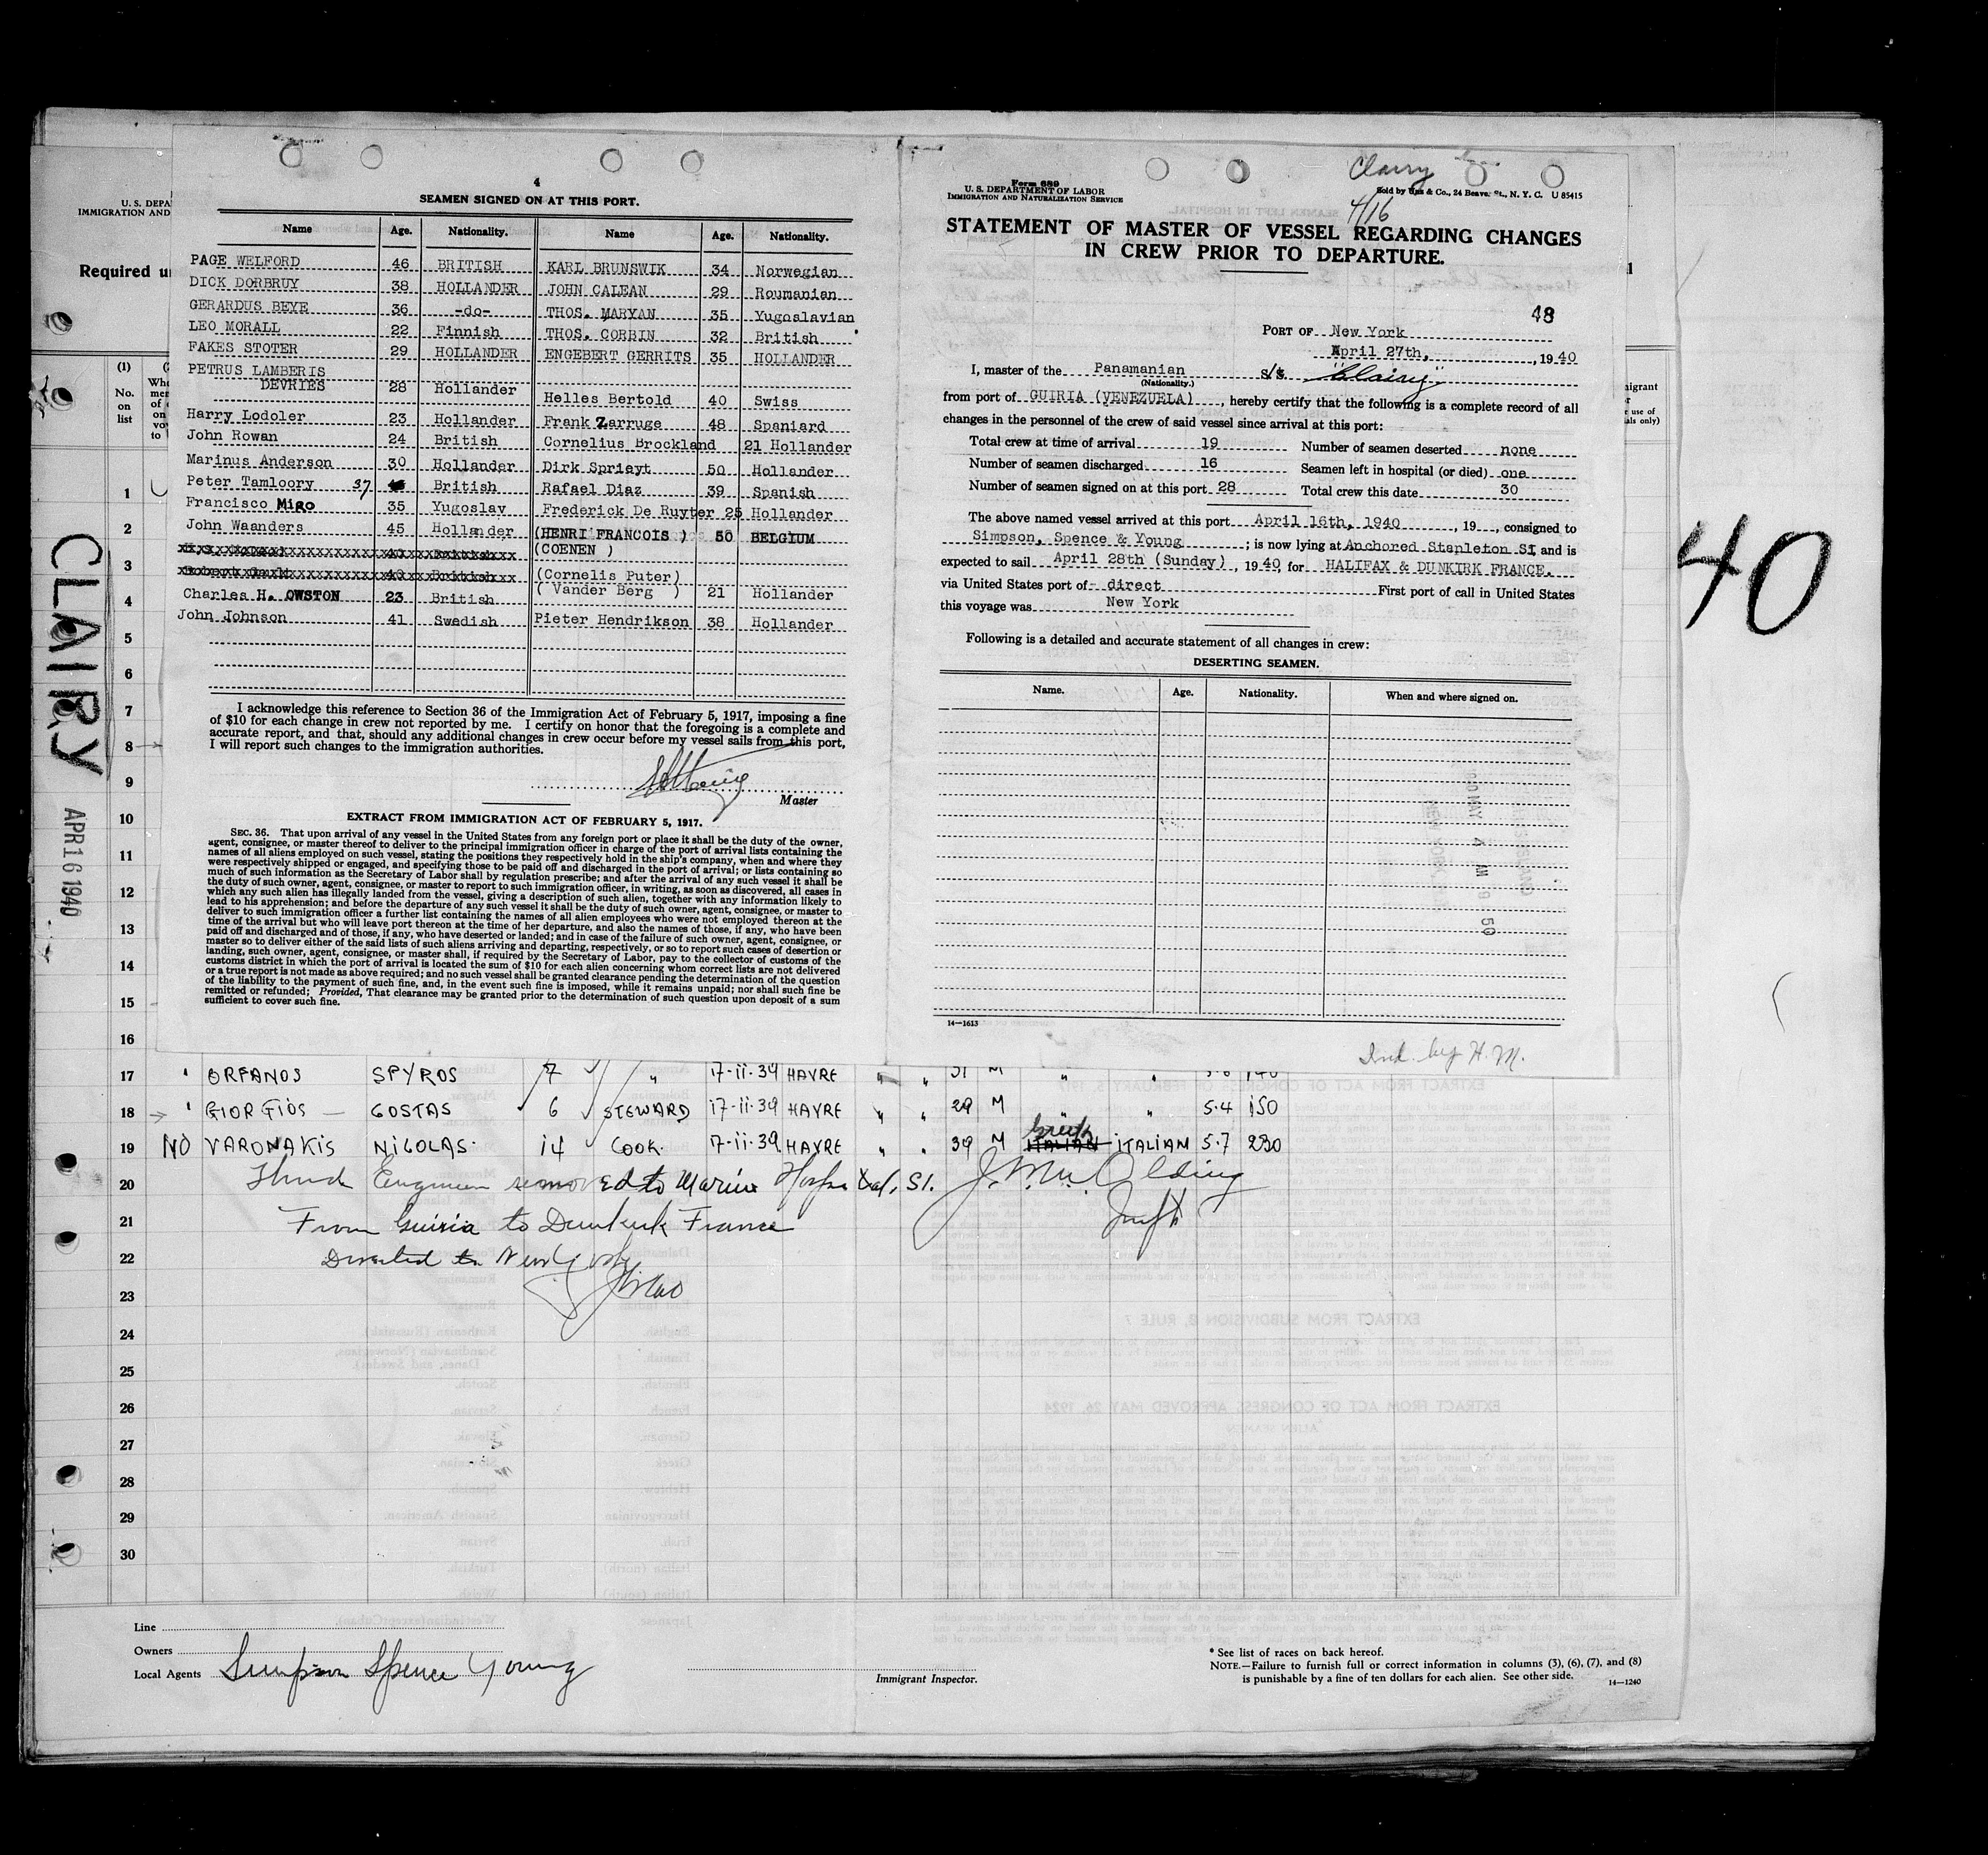 4
SEAMEN SIGNED ON AT THIS PORT.
Name Age. Nationality. Name Age. Nationality.
PAGE WELFORD 46 BRITISH KARL BRUNSWIK 34 Norwegian
DICK DORBRUY 38 HOLLANDER JOHN CALEAN 29 Roumanian
GERARDUS BEYE 36 -do- THOS. MARYAN 35 Yugoslavian
LEO MORALL 22 Finnish THOS. CORBIN 32 British
FAKES STOTER 29 HOLLANDER ENGEBERT GERRITS 35 HOLLANDER
PETRUS LAMBERIS
DEVRIES 28 Hollander Helles Bertold 40 Swiss
Harry Lodoler 23 Hollander Frank Zarruge 48 Spaniard
John Rowan 24 British Cornelius Brockland 21 Hollander
Marinus Anderson 30 Hollander Dirk Sprieyt 50 Hollander
Peter Tamloory 37 British Rafael Diaz 39 Spanish
Francisco Miro 35 Yugoslav Frederick De Ruyter 25 Hollander
John Waanders 45 Hollander (HENRI FRANCOIS ) 50 BELGIUM
(COENEN )
(Cornelis Puter)
Charles H. OWSTON 23 British ( Vander Berg ) 21 Hollander
John Johnson 41 Swedish Pieter Hendrikson 38 Hollander
I acknowledge this reference to Section 36 of the Immigration Act of February 5, 1917, imposing a fine
of $10 for each change in crew not reported by me. I certify on honor that the foregoing is a complete and
accurate report, and that, should any additional changes in crew occur before my vessel sails from this port,
I will report such changes to the immigration authorities.
Master
EXTRACT FROM IMMIGRATION ACT OF FEBRUARY 5, 1917.
SEC. 36. That upon arrival of any vessel in the United States from any foreign port or place it shall be the duty of the owner,
agent, consignee, or master thereof to deliver to the principal immigration officer in charge of the port of arrival lists containing the
names of all aliens employed on such vessel, stating the positions they respectively hold in the ship's company, when and where they
were respectively shipped or engaged, and specifying those to be paid off and discharged in the port of arrival; or lists containing so
much of such information as the Secretary of Labor shall by regulation prescribe; and after the arrival of any such vessel it shall be
the duty of such owner, agent, consignee, or master to report to such immigration officer, in writing, as soon as discovered, all cases in
which any such alien has illegally landed from the vessel, giving a description of such alien, together with any information likely to
lead to his apprehension; and before the departure of any such vessel it shall be the duty of such owner, agent, consignee, or master to
deliver to such immigration officer a further list containing the names of all alien employees who were not employed thereon at the
time of the arrival but who will leave port thereon at the time of her departure, and also the names of those, if any, who have been
paid off and discharged and of those, if any, who have deserted or landed; and in case of the failure of such owner, agent, consignee, or
master so to deliver either of the said lists of such aliens arriving and departing, respectively, or so to report such cases of desertion or
landing, such owner, agent, consignee, or master shall, if required by the Secretary of Labor, pay to the collector of customs of the
customs district in which the port of arrival is located the sum of $10 for each alien concerning whom correct lists are not delivered
or a true report is not made as above required; and no such vessel shall be granted clearance pending the determination of the question
of the liability to the payment of such fine, and, in the event such fine is imposed, while it remains unpaid; nor shall such fine be
remitted or refunded; Provided, That clearance may be granted prior to the determination of such question upon deposit of a sum
sufficient to cover such fine.
Clairy
4/16
Form 689
U. S. DEPARTMENT OF LABOR
IMMIGRATION AND NATURALIZATION SERVICE
Sold by & Co., 24 Beaver St., N. Y. C. U 85415
STATEMENT OF MASTER OF VESSEL REGARDING CHANGES
IN CREW PRIOR TO DEPARTURE.
48
PORT OF New York
April 27th, , 1940
I, master of the Panamanian S/S "Clairy"
(Nationality.)
from port of GUIRIA (VENEZUELA) , hereby certify that the following is a complete record of all
changes in the personnel of the crew of said vessel since arrival at this port:
Total crew at time of arrival 19 Number of seamen deserted none
Number of seamen discharged 16 Seamen left in hospital (or died) one
Number of seamen signed on at this port 28 Total crew this date 30
The above named vessel arrived at this port April 16th, 1940 , 19 , consigned to
Simpson, Spence & Young ; is now lying at Anchored Stapleton SI and is
expected to sail April 28th (Sunday) , 1940 for HALIFAX & DUNKIRK FRANCE.
via United States port of - direct First port of call in United States
this voyage was New York
Following is a detailed and accurate statement of all changes in crew:
DESERTING SEAMEN.
Name. Age. Nationality. When and where signed on.
MAY 4 AM 9 50
14—1613
Ind. by H. M.
40
U. S. DEPA
IMMIGRATION AND
Required u
(1)
No.
on
list
CLAIRY
APR 16 1940
1
2
3
4
5
6
7
8
9
10
11
12
13
14
15
16
17 ORFANOS SPYROS 7 " 17-11-39 HAVRE " " 31 M " " 5.6 140
18 GIORGIOS GOSTAS 6 STEWARD 17-11-39 HAVRE " " 29 M " " 5.4 150
19 NO VARONAKIS NICOLAS 14 COOK 17-11-39 HAVRE " " 39 M Greek ITALIAN ITALIAN 5.7 230
20 Third Engineer removed to Marine Hospital, SI.
21 From Guiria to Dunkirk France
22 Diverted to New York
23
24
25
26
27
28
29
30
Line
Owners
Local Agents Simpson Spence Young
Immigrant Inspector.
* See list of races on back hereof.
NOTE.—Failure to furnish full or correct information in columns (3), (6), (7), and (8)
is punishable by a fine of ten dollars for each alien. See other side.
14—1240